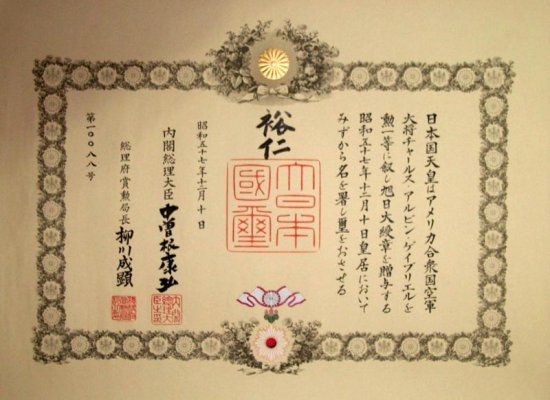 日本国天皇はアメリカ合衆国空軍
大将チャールス アルビン・ゲイブリエルを
勲一等に叙し旭日大綬章を贈与する
昭和五十七年十二月十日皇居において
みずから名を署し璽をおさせる
裕仁
大日本
國璽
昭和五十七年十二月十日
内閣総理大臣 中曽根康弘
総理府賞勲局長 柳川成顕
第一〇〇八八号